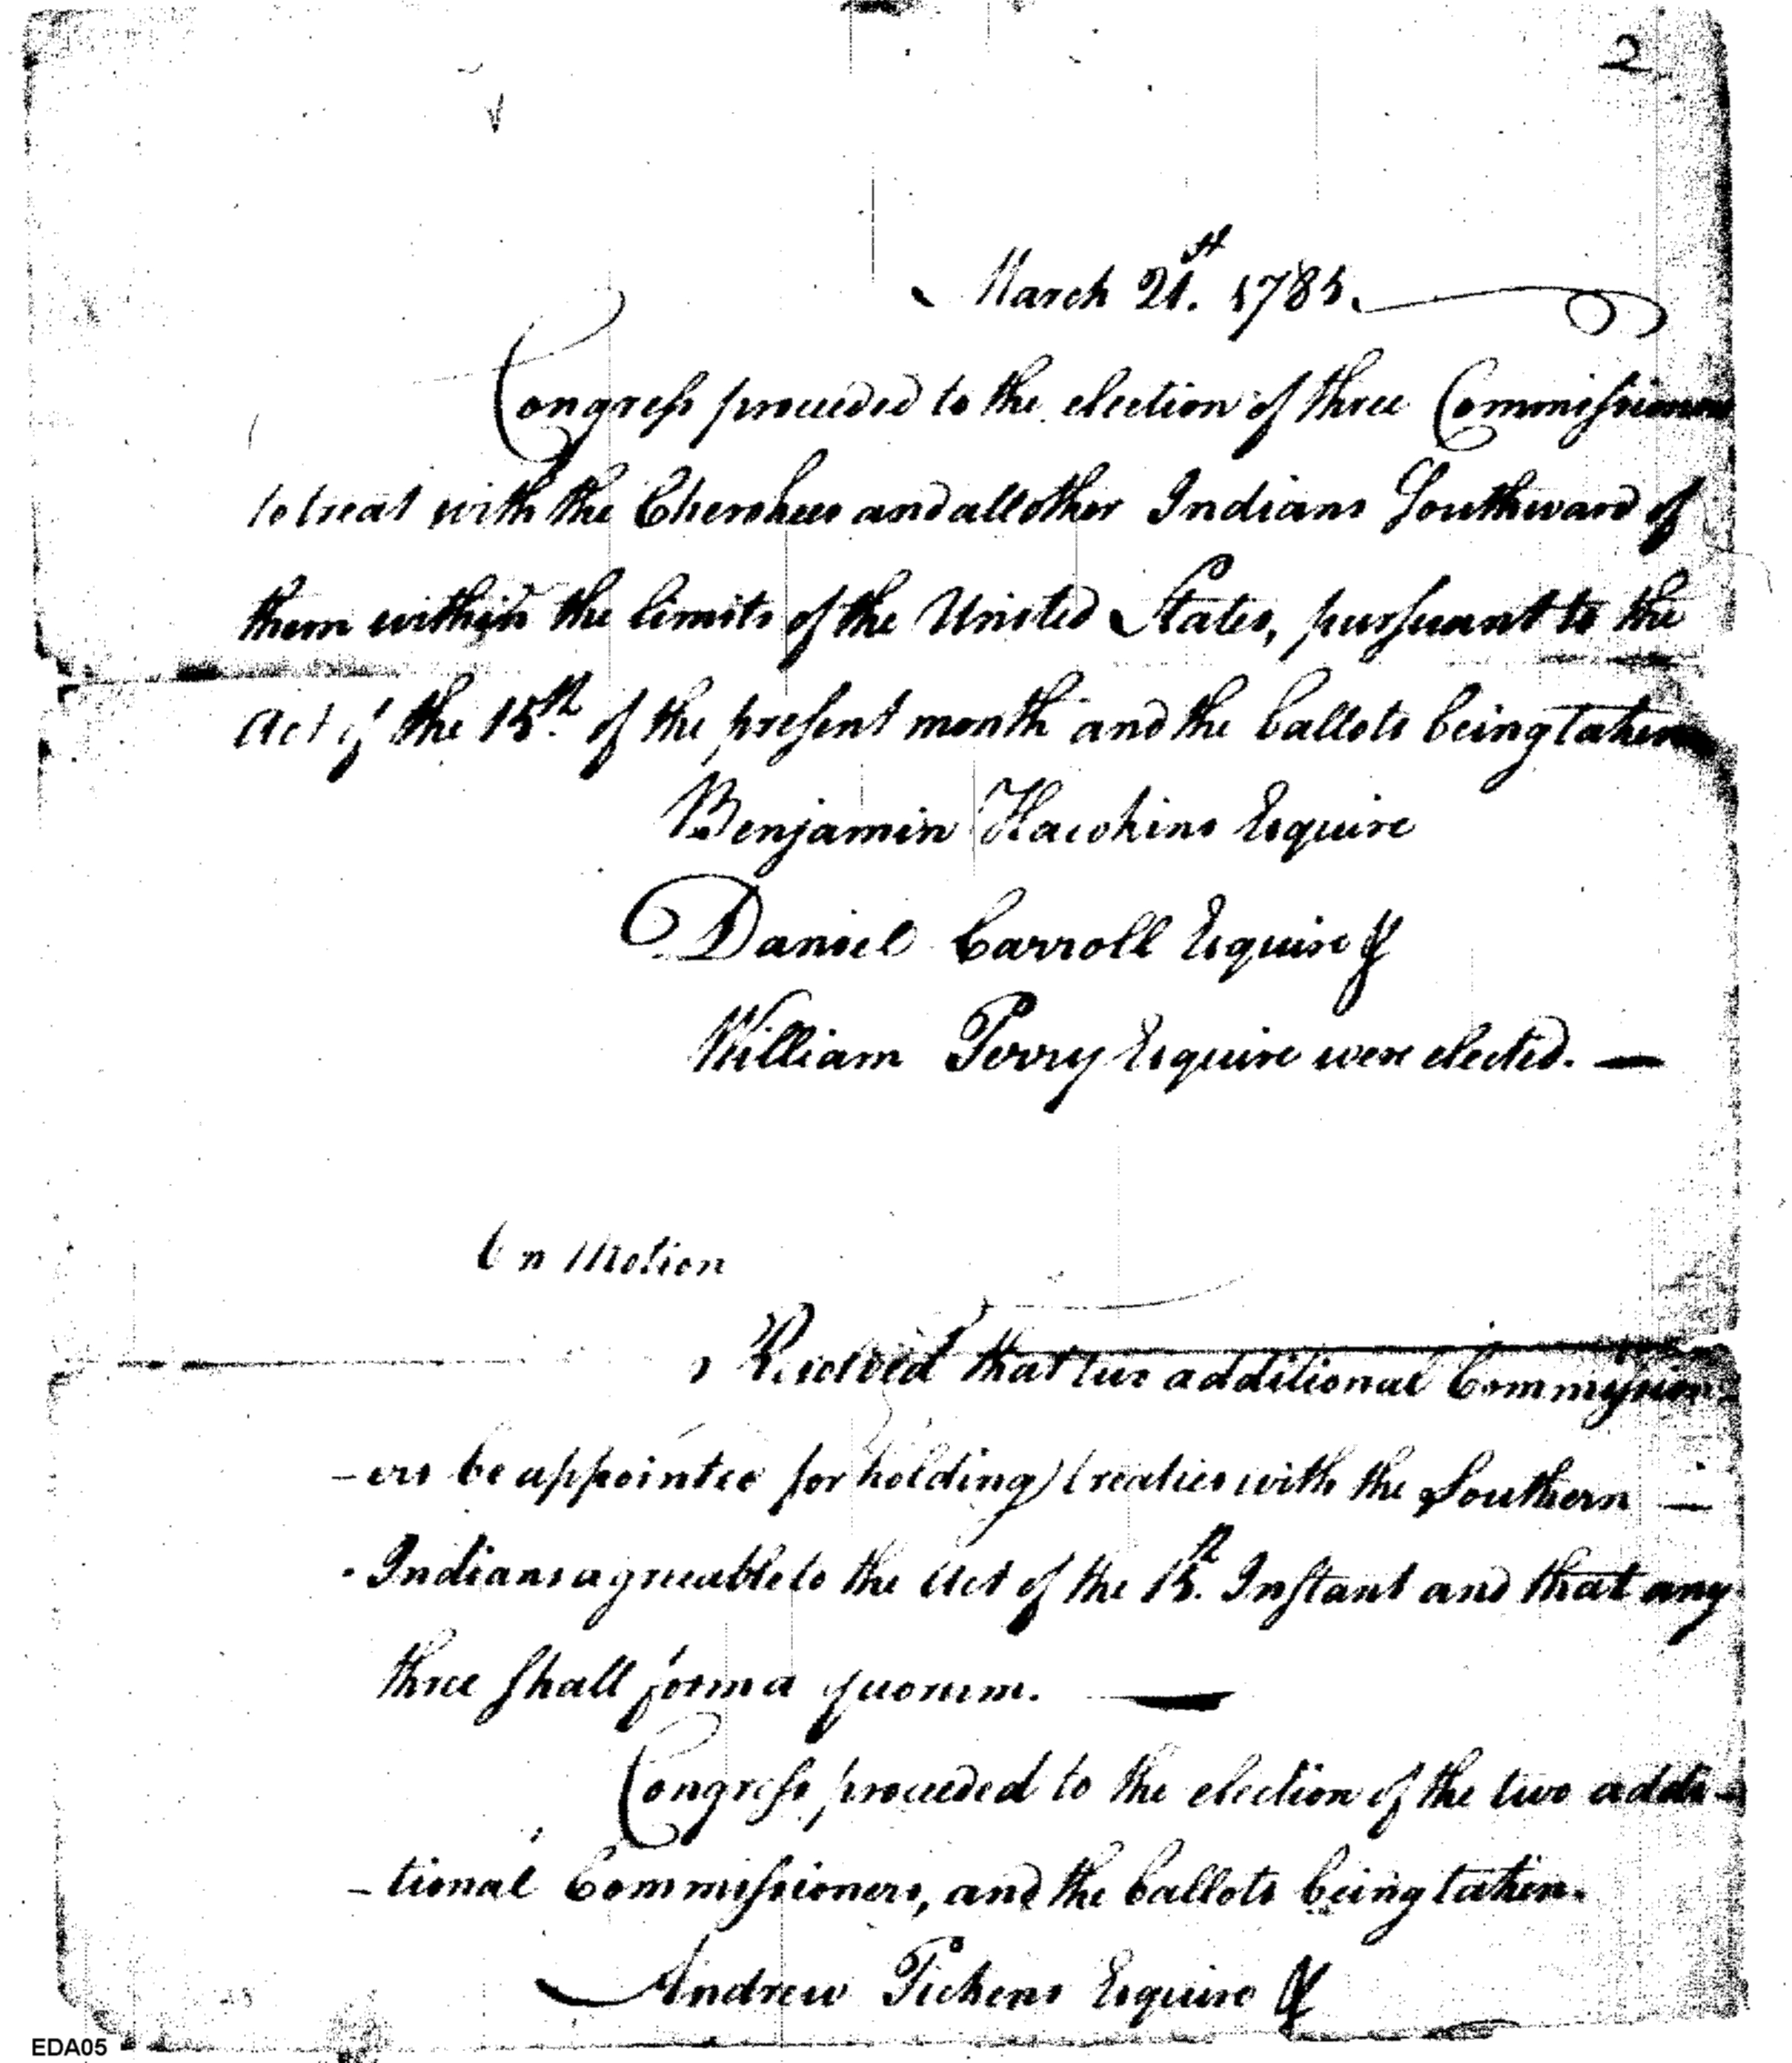 2
March 21st. 1785.
Congress proceeded to the election of three Commissioners
to treat with the Cherokees and all other Indians Southward of
them within the limits of the United States, pursuant to the
Act of the 15th. of the present month and the ballots being taken
Benjamin Hawkins Esquire
Daniel Carroll Esquire &
William Perry Esquire were elected. —
On Motion
Resolved that two additional Commission-
-ers be appointed for holding treaties with the Southern —
Indians agreeable to the Act of the 15th. Instant and that any
three shall form a quorum. —
Congress proceeded to the election of the two addi-
-tional Commissioners, and the ballots being taken.
Andrew Pickens Esquire &
EDA05